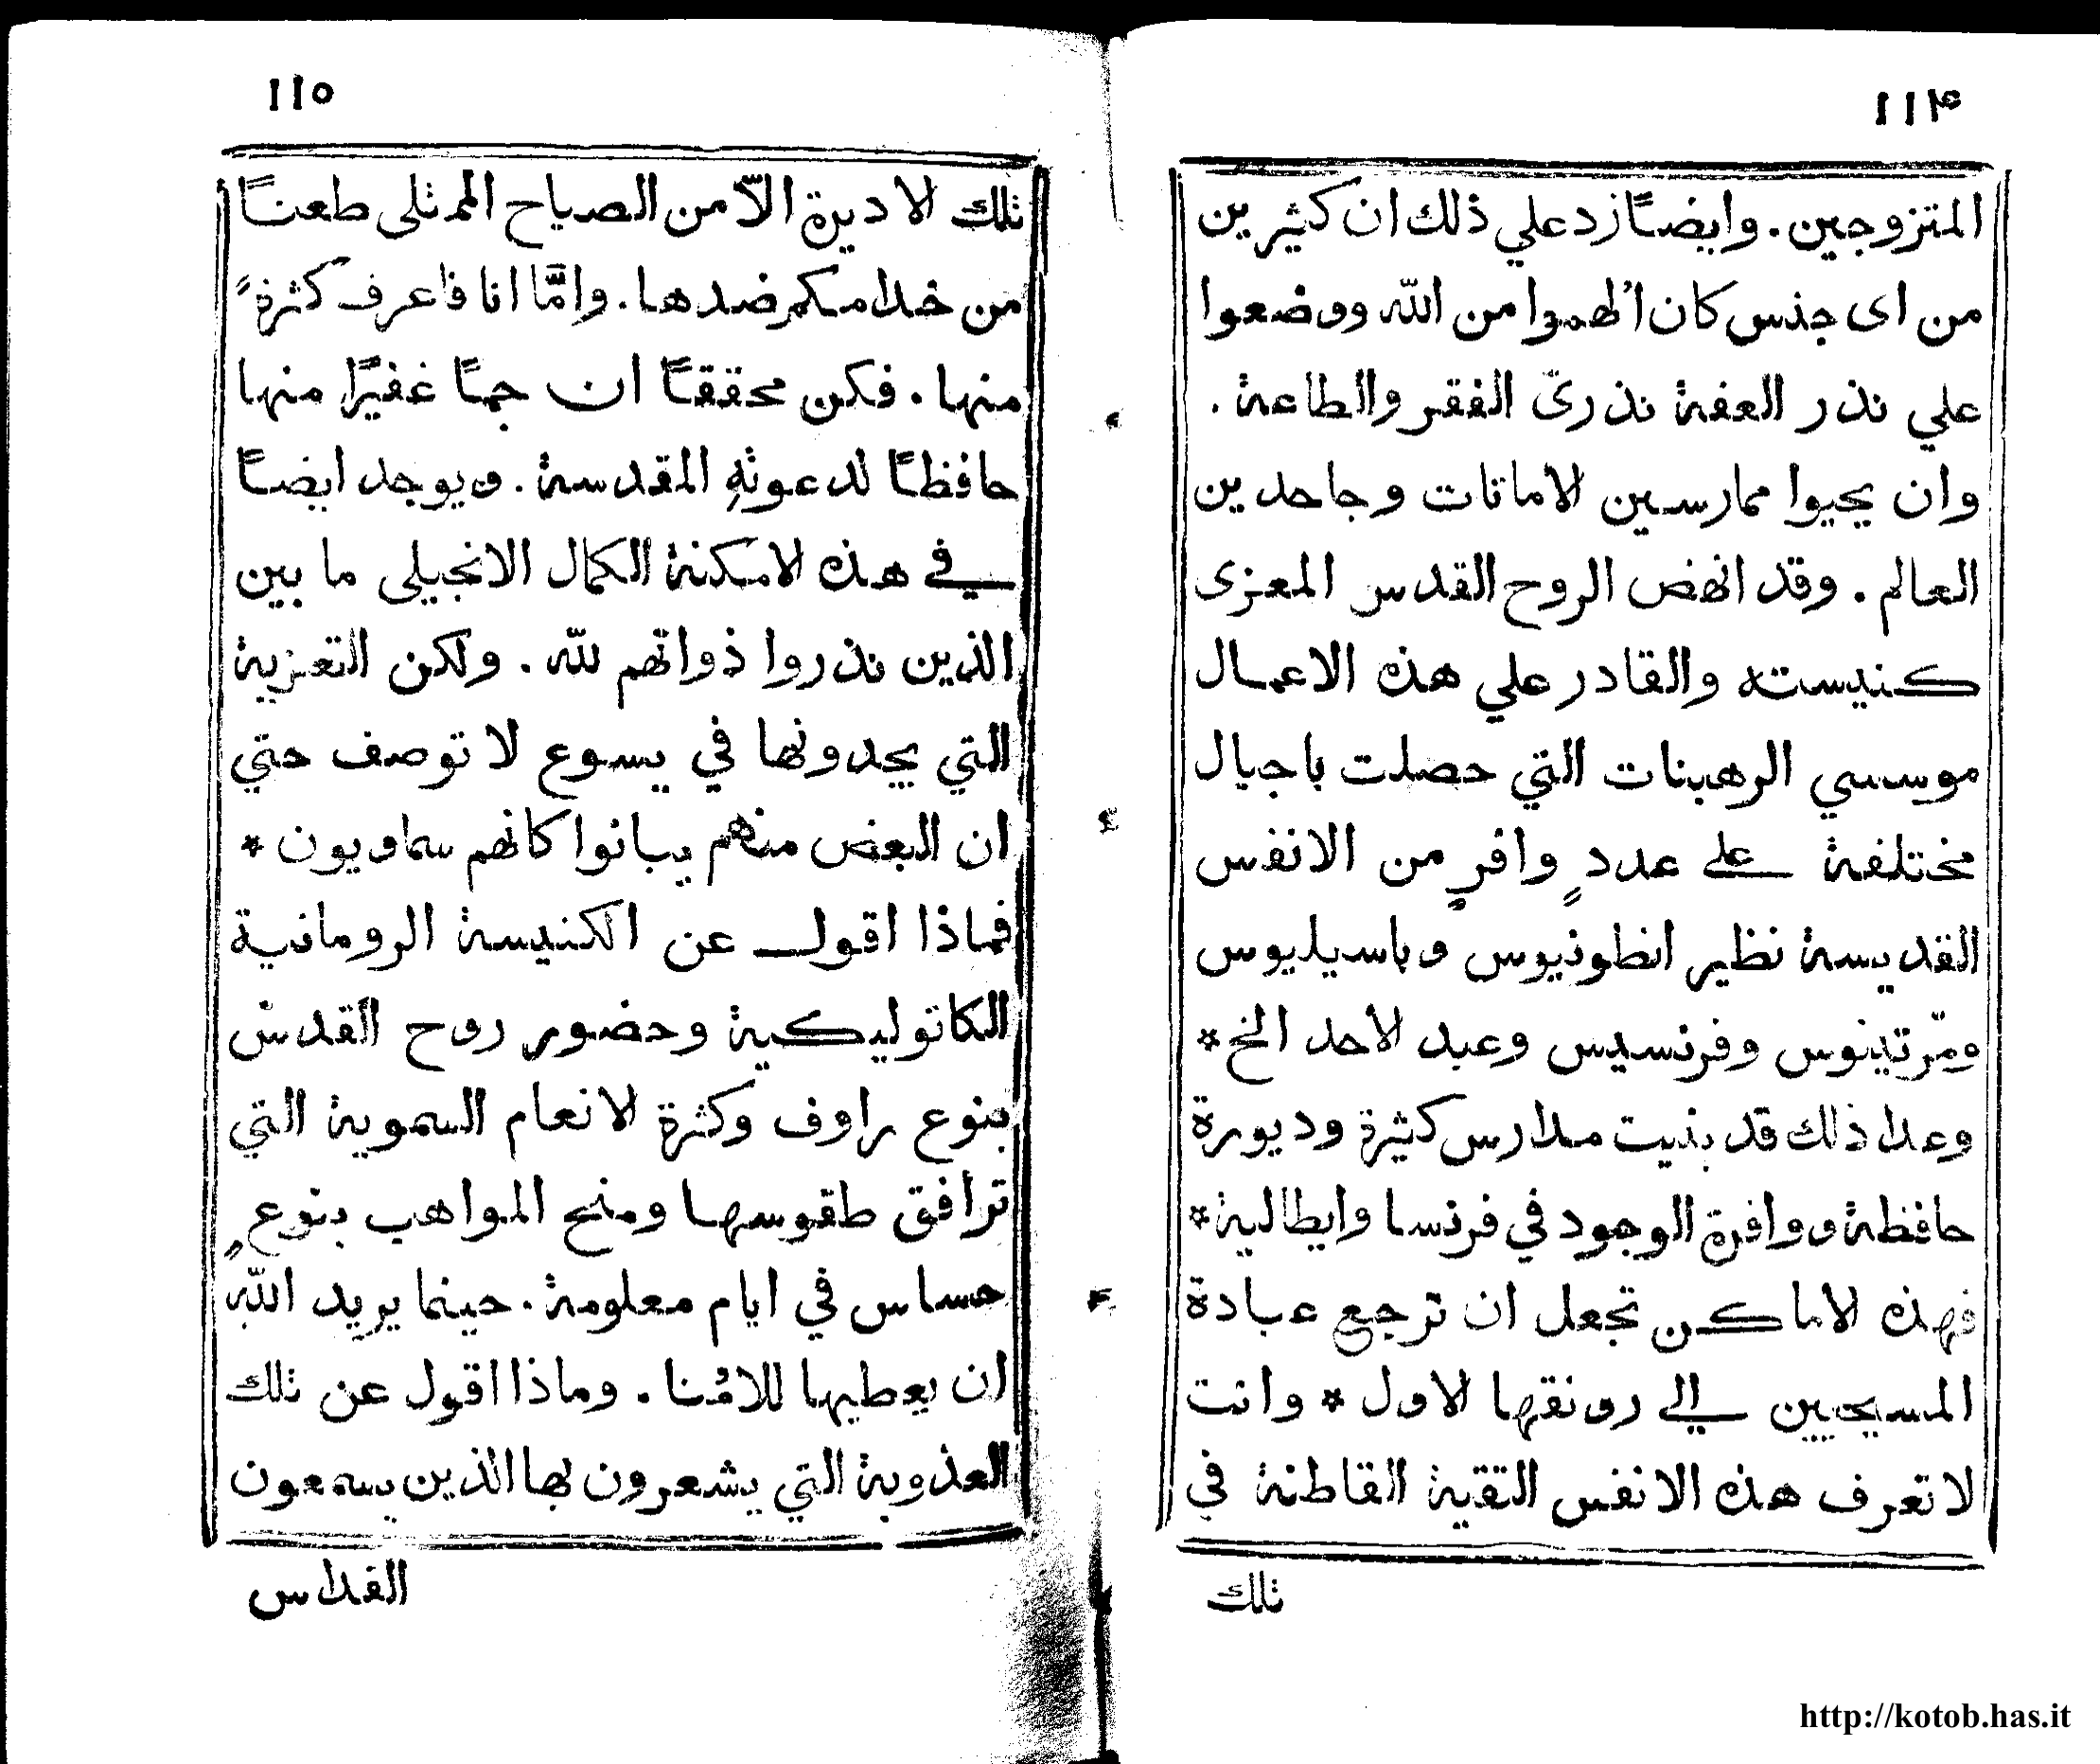 ١١٤
المتزوجين. وايضًا زد علي ذلك ان كثيرين
من اى جنس كان اُلهموا من اللّه ووضعوا
علي نذر العفة نذرىّ الفقر والطاعة.
وان يحيوا ممارسين الاماتات وجاحدين
العالم. وقد انهض الروح القدس المعزى
كنيسته والقادر علي هذه الاعمال
موسسي الرهبنات التي حصلت باجيال
مختلفة على عددٍ وافرٍ من الانفس
القديسة نظير انطونيوس وباسيليوس
ومّرتينوس وفرنسيس وعبد الاحد الخ *
وعدا ذلك قد بنيت مدارس كثيرة وديورة
حافظة ووافرة الوجود في فرنسا وايطالية *
فهذه الاماكن تجعل ان ترجع عبادة
المسيحيين الى رونقها الاول * وانت
لا تعرف هذه الانفس التقية القاطنة في
تلك
١١٥
تلك الاديرة الاّ من الصياح الممتلى طعنًا
من خدامكم ضدها. وامَّا انا فاعرف كثرةً
منها. فكن محققًا ان جمًا غفيرًا منها
حافظًا لدعوتهِ المقدسة. ويوجد ايضًا
في هذه الامكنة الكمال الانجيلى ما بين
الذين نذروا ذواتهم للّه. ولكن التعزية
التي يجدونها في يسوع لا توصف حتي
ان البعض منهم يبانوا كانهم سماويون *
فماذا اقول عن الكنيسة الرومانية
الكاتوليكية وحضور روح القدس
بنوع راوف وكثرة الانعام السموية التي
ترافق طقوسها ومنح المواهب بنوعٍ
حساس في ايام معلومة. حينما يريد اللّه
ان يعطيها للامُنا. وماذا اقول عن تلك
العذوبة التي يشعرون بها الذين يسمعون
القداس
http://kotob.has.it